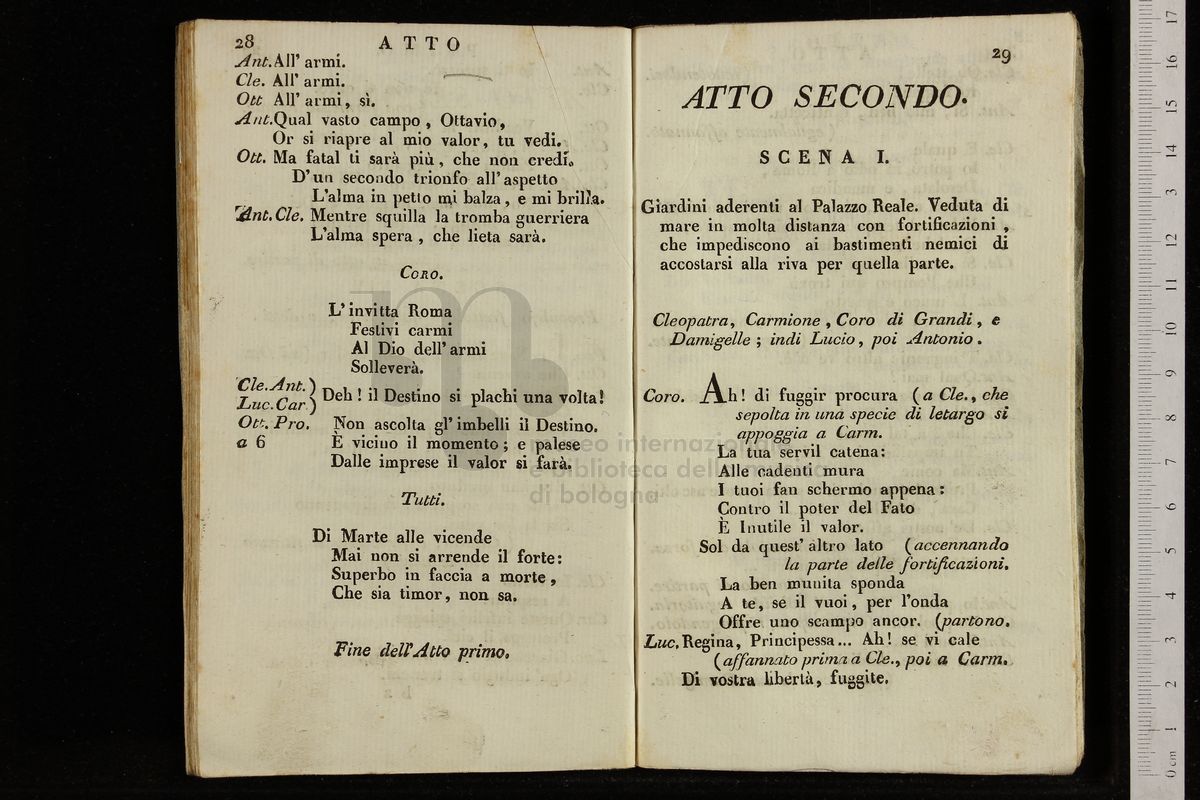 28 ATTO
Ant. All' armi.
Cle. All' armi.
Ott All' armi, sì.
Ant. Qual vasto campo, Ottavio,
Or si riapre al mio valor, tu vedi.
Ott. Ma fatal ti sarà più, che non credi.
D'un secondo trionfo all' aspetto
L'alma in petto mi balza, e mi brilla.
Ant. Cle. Mentre squilla la tromba guerriera
L'alma spera, che lieta sarà.
Coro.
L'invitta Roma
Festivi carmi
Al Dio dell' armi
Solleverà.
Cle. Ant. )
Luc. Car ) Deh! il Destino si plachi una volta!
Ott. Pro. Non ascolta gl' imbelli il Destino.
a 6 È vicino il momento; e palese
Dalle imprese il valor si farà.
Tutti.
Di Marte alle vicende
Mai non si arrende il forte:
Superbo in faccia a morte,
Che sia timor, non sa.
Fine dell'Atto primo.
29
ATTO SECONDO.
SCENA I.
Giardini aderenti al Palazzo Reale. Veduta di
mare in molta distanza con fortificazioni,
che impediscono ai bastimenti nemici di
accostarsi alla riva per quella parte.
Cleopatra, Carmione, Coro di Grandi, e
Damigelle; indi Lucio, poi Antonio.
Coro. Ah! di fuggir procura (a Cle., che
sepolta in una specie di letargo si
appoggia a Carm.
La tua servil catena:
Alle cadenti mura
I tuoi fan schermo appena:
Contro il poter del Fato
È Inutile il valor.
Sol da quest' altro lato (accennando
la parte delle fortificazioni.
La ben munita sponda
A te, se il vuoi, per l'onda
Offre uno scampo ancor. (partono.
Luc. Regina, Principessa... Ah! se vi cale
(affannato prima a Cle., poi a Carm.
Di vostra libertà, fuggite.
museo internazionale
e biblioteca della musica
di bologna
0 cm 1 2 3 4 5 6 7 8 9 10 11 12 13 14 15 16 17